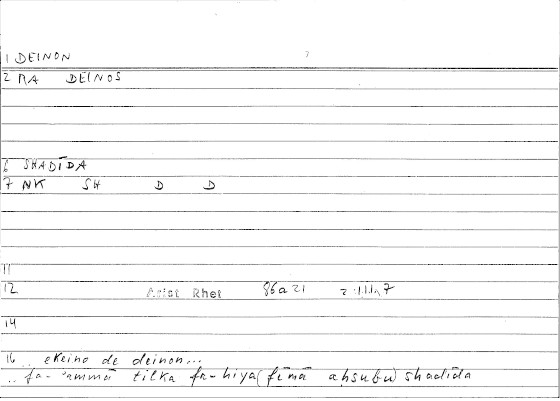 1 DEINON
2 MA DEINOS
6 SHADĪDA
7 NK SH D D
11
12 Arist Rhet 86a21
14
16 .. ekeino de deinon...
.. fa-'ammā tilka fa-hiya (fīmā aḥsubu) shadīda